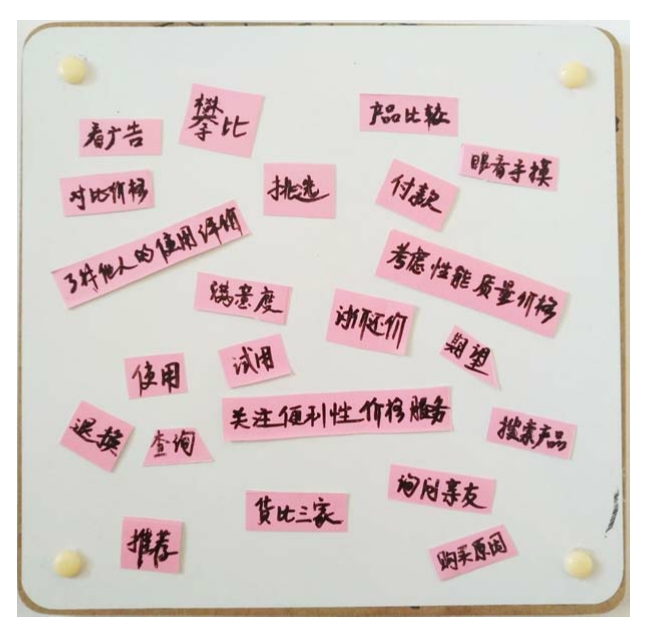 看广告
攀比
产品比较
眼看手摸
对比价格
挑选
付款
了解他人的使用评价
考虑性能质量价格
满意度
讨价还价
期望
使用
试用
关注便利性价格服务
退换
查询
搜索产品
询问亲友
货比三家
推荐
购买原因